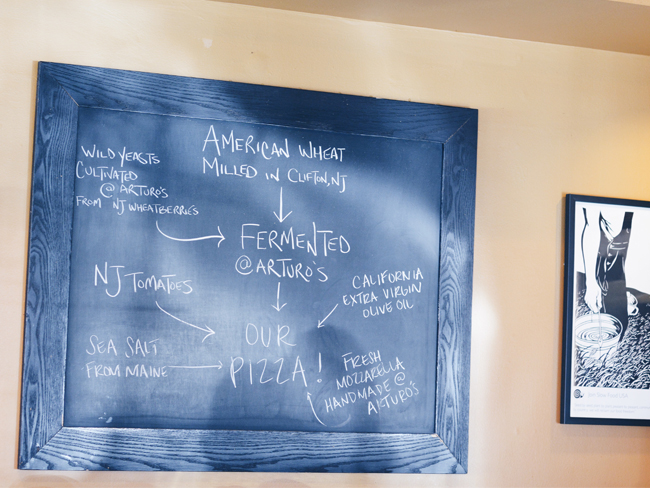 AMERICAN WHEAT
MILLED IN CLIFTON, NJ
WILD YEASTS
CULTIVATED
@ ARTURO'S
FROM NJ WHEATBERRIES
FERMENTED
@ARTURO'S
NJ TOMATOES
CALIFORNIA
EXTRA VIRGIN
OLIVE OIL
SEA SALT
FROM MAINE
OUR
PIZZA!
FRESH
MOZZARELLA
HANDMADE @
ARTURO'S